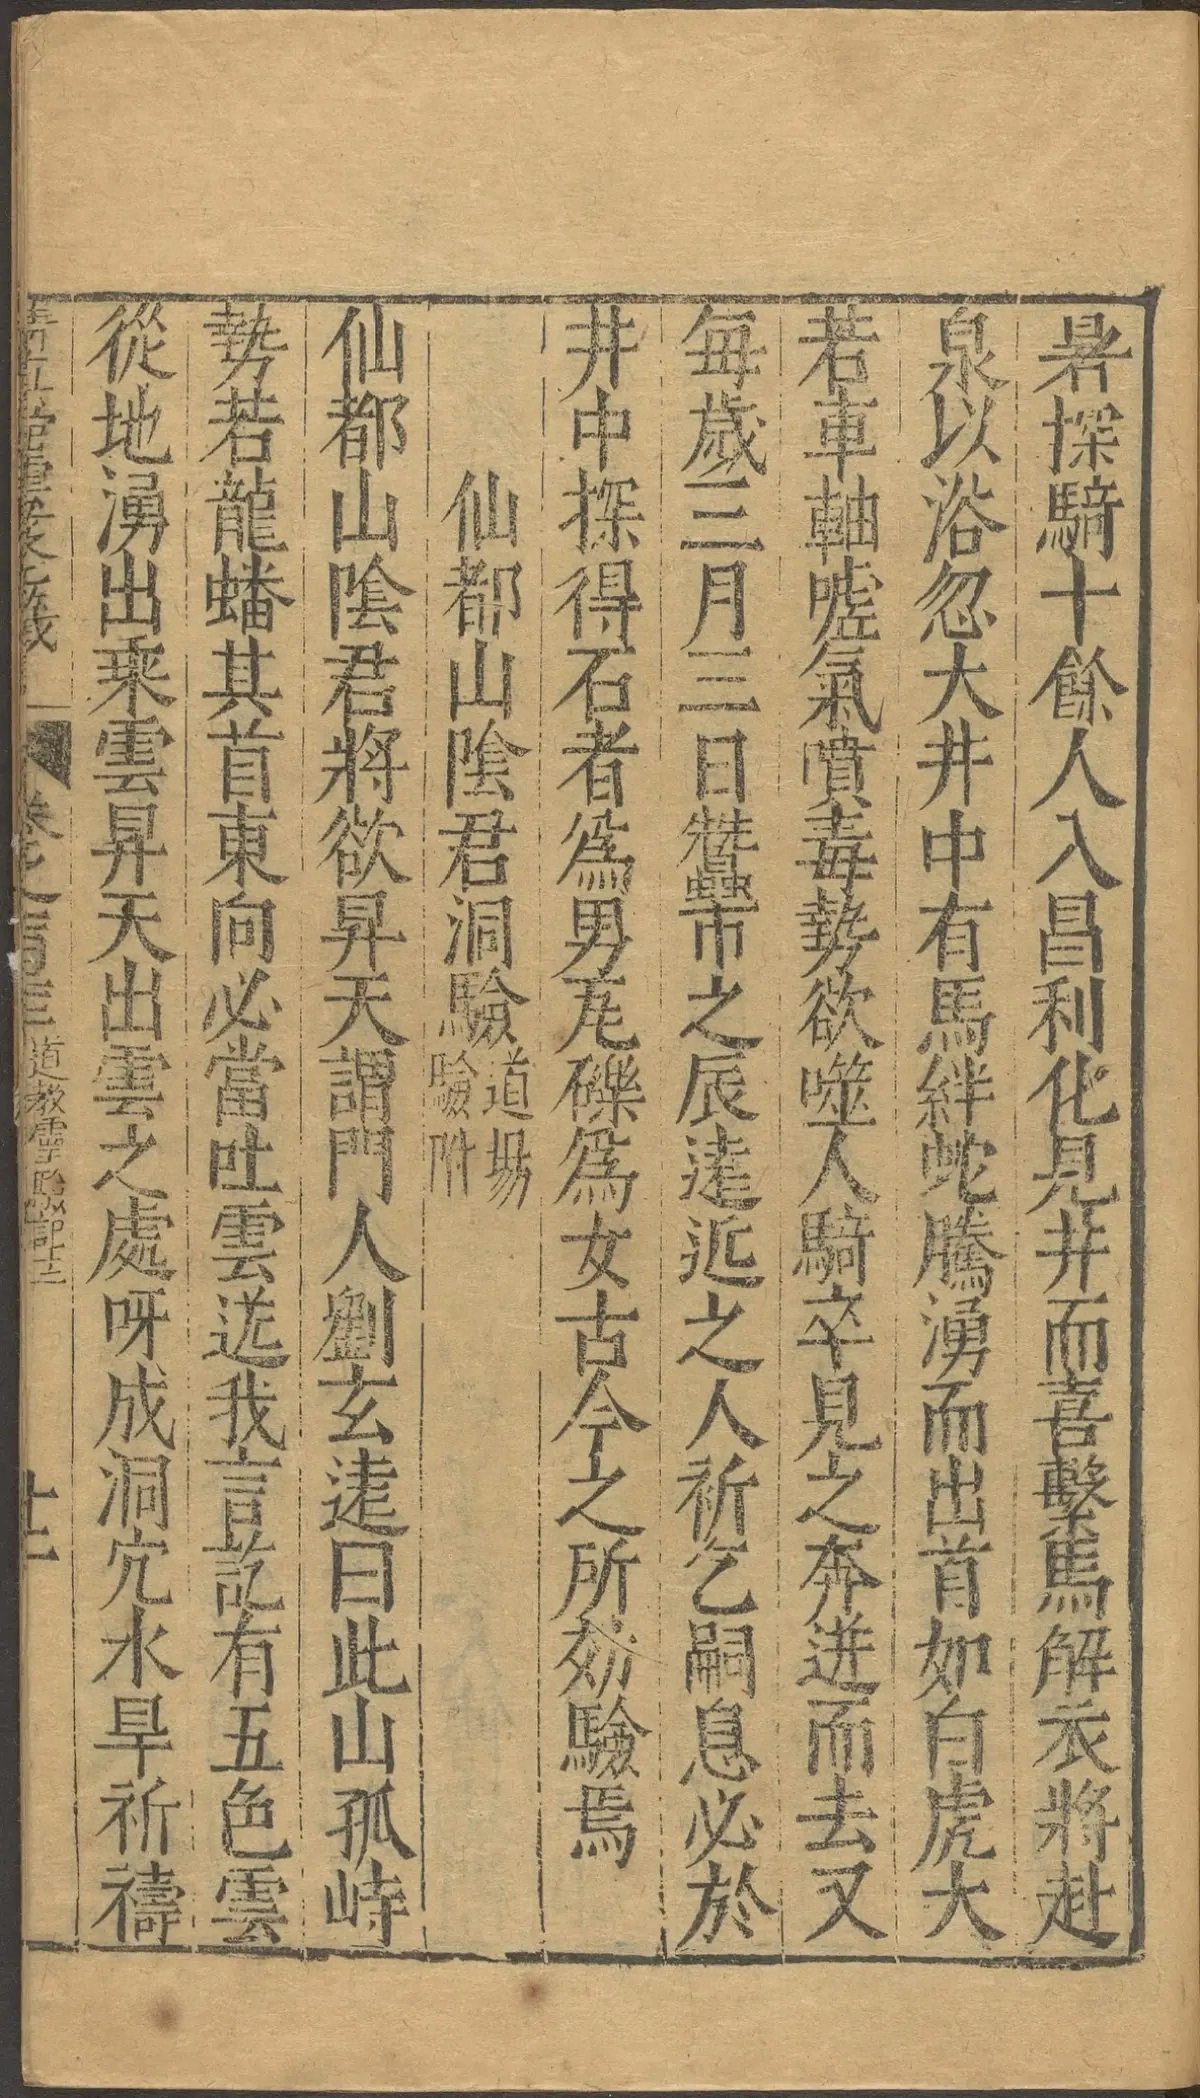 暑探騎十餘人入昌利化見井而喜繫馬解衣將赴
泉以浴忽大井中有馬絆蛇騰湧而出首如白虎大
若車軸噓氣噴毒勢欲噬人騎卒見之奔迸而去又
每歲三月三日蠶市之辰遠近之人祈乞嗣息必於
井中探得石者爲男瓦礫爲女古今之所効驗焉
仙都山陰君洞驗道場驗附
仙都山陰君將欲昇天謂門人劉玄遠曰此山孤峙
勢若龍蟠其首東向必當吐雲送我言訖有五色雲
從地湧出乘雲昇天出雲之處呀成洞穴水旱祈禱
卷之 道教靈驗記 十二